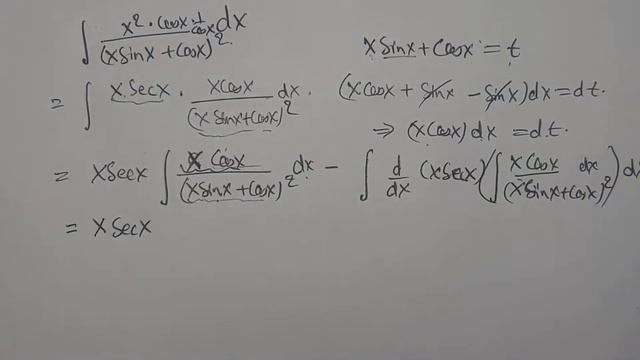 ∫ x² · Cosx · 1/Cosx / (xSinx + Cosx)² dx
xSinx + Cosx = t
= ∫ xSecx · xCosx / (xSinx + Cosx)² dx.
(xCosx + Sinx - Sinx)dx = dt.
⇒ (xCosx) dx = dt.
= xSecx ∫ xCosx / (xSinx + Cosx)² dx - ∫ d/dx (xSecx) (∫ xCosx dx / (xSinx + Cosx)²) d
= xSecx